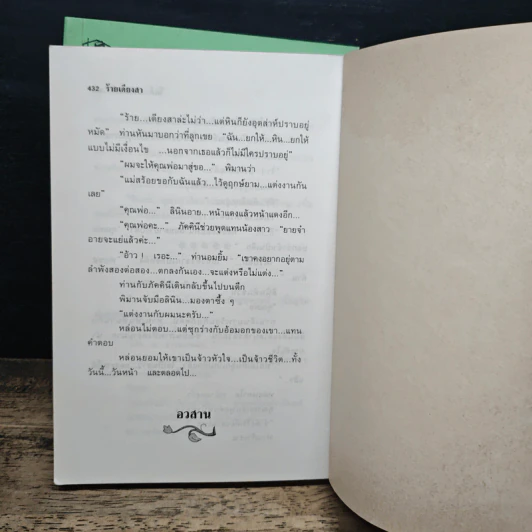 432 ร้ายเดียงสา
"ร้าย...เดียงสาล่ะไม่ว่า...แต่หินก็ยังอุตส่าห์ปราบอยู่
หมัด" ท่านหันมาบอกว่าที่ลูกเขย "ฉัน...ยกให้...หิน...ยกให้
แบบไม่มีเงื่อนไข ...นอกจากเธอแล้วก็ไม่มีใครปราบอยู่"
"ผมจะให้คุณพ่อมาสู่ขอ..." พิมานว่า
"แม่สร้อยขอกับฉันแล้ว...ไว้ดูฤกษ์ยาม...แต่งงานกัน
เลย"
"คุณพ่อ..." ลินินอาย...หน้าแดงแล้วหน้าแดงอีก...
"คุณพ่อคะ..." ภัคคินีช่วยพูดแทนน้องสาว "ยายจ๋า
อายจะแย่แล้วค่ะ..."
"อ้าว ! เรอะ..." ท่านอมยิ้ม "เขาคงอยากอยู่ตาม
ลำพังสองต่อสอง...ตกลงกันเอง...จะแต่งหรือไม่แต่ง..."
ท่านกับภัคคินีเดินกลับขึ้นไปบนตึก
พิมานจับมือลินิน...มองตาซึ้ง ๆ
"แต่งงานกับผมนะครับ..."
หล่อนไม่ตอบ...แต่ซุกร่างกับอ้อมอกของเขา...แทน
คำตอบ
หล่อนยอมให้เขาเป็นจ้าวหัวใจ...เป็นจ้าวชีวิต...ทั้ง
วันนี้...วันหน้า และตลอดไป...
อวสาน